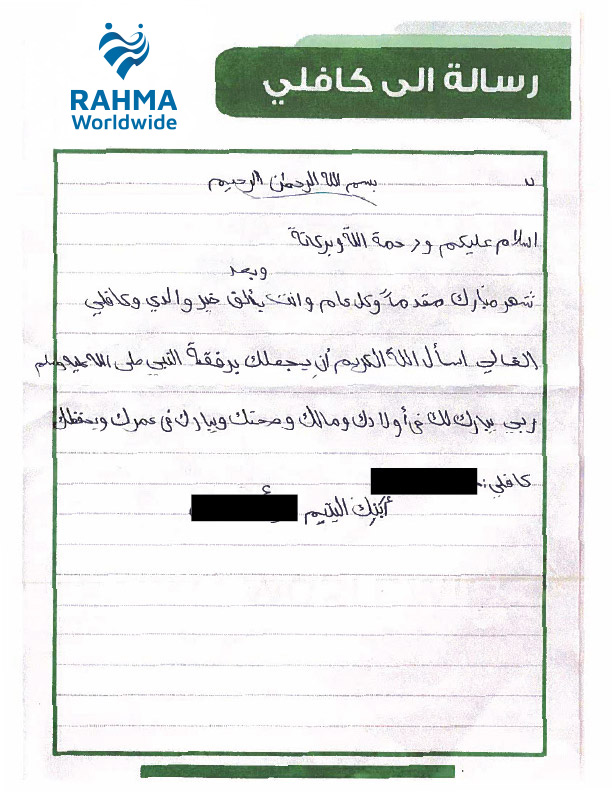 RAHMA
Worldwide
رسالة الى كافلي
بسم الله الرحمن الرحيم
اسلام عليكم ورحمة الله وبركاتة
وبعد
شهر مبارك مقدماً وكل عام وانت بألق خير والدي وكافلي
الغالي اسأل الله الكريم أن يجعلك برفقة النبي صلى الله عليه وسلم
ربي يبارك لك في أولادك ومالك وصحتك ويبارك في عمرك ويحفظك
كافلي:
أبنك اليتيم